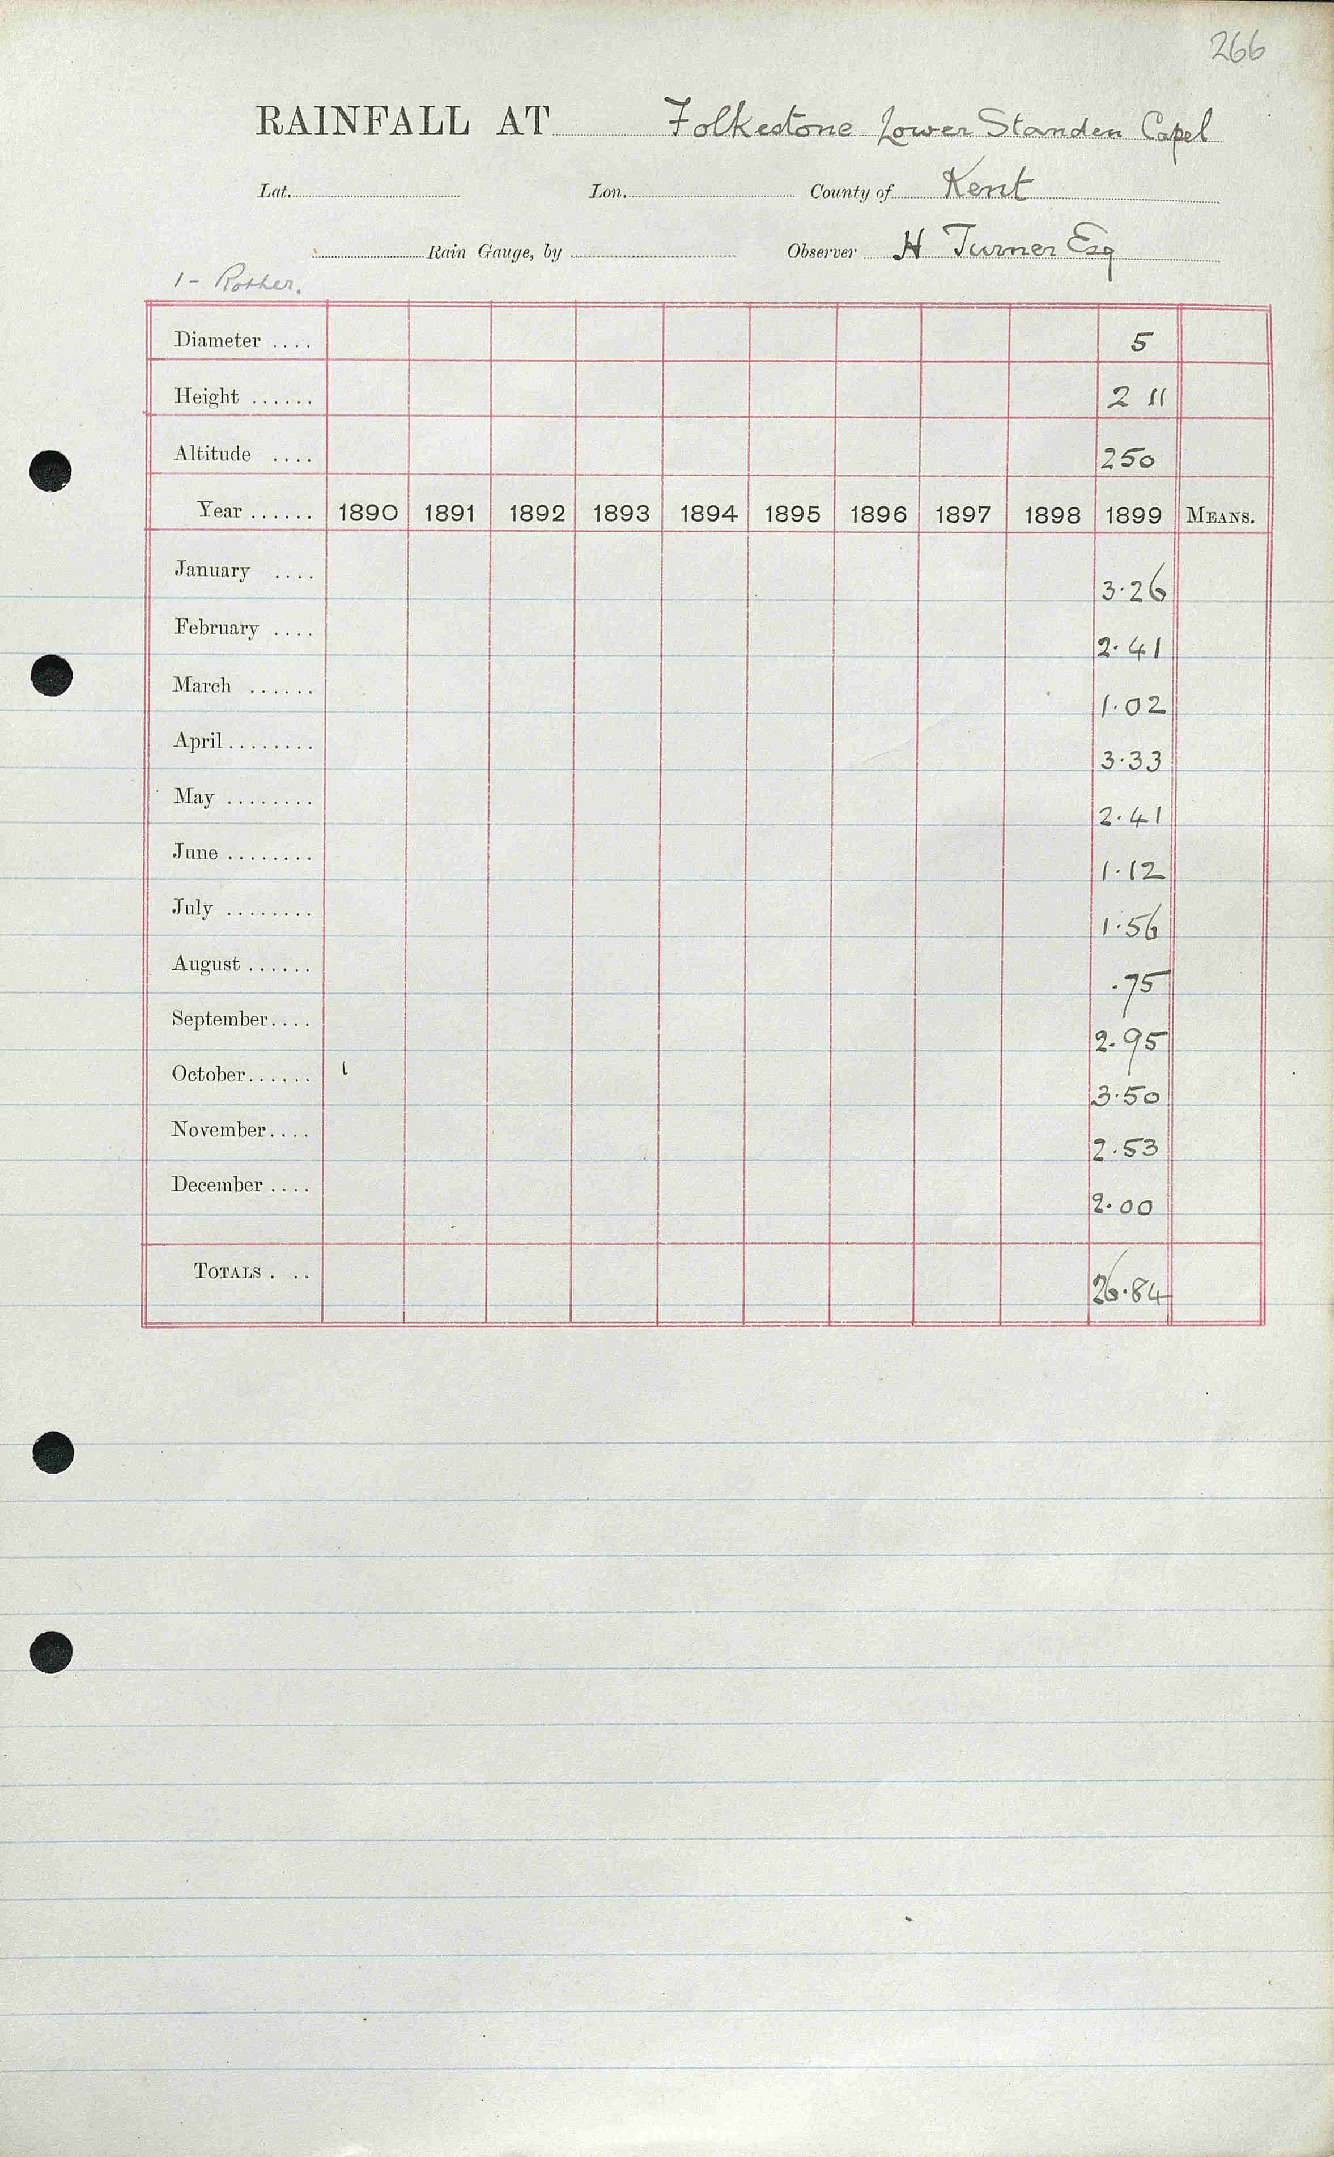 266
RAINFALL AT Folkestone Lower Standen Capel
Lat. Lon. County of Kent
Rain Gauge, by Observer H Turner Esq
1 - Rother.
Diameter .... 5
Height ...... 2 11
Altitude .... 250
Year ...... 1890 1891 1892 1893 1894 1895 1896 1897 1898 1899 MEANS.
January .... 3.26
February .... 2.41
March ...... 1.02
April ........ 3.33
May ........ 2.41
June ........ 1.12
July ........ 1.56
August ...... .75
September .... 2.95
October ...... 3.50
November .... 2.53
December .... 2.00
TOTALS . .. 26.84